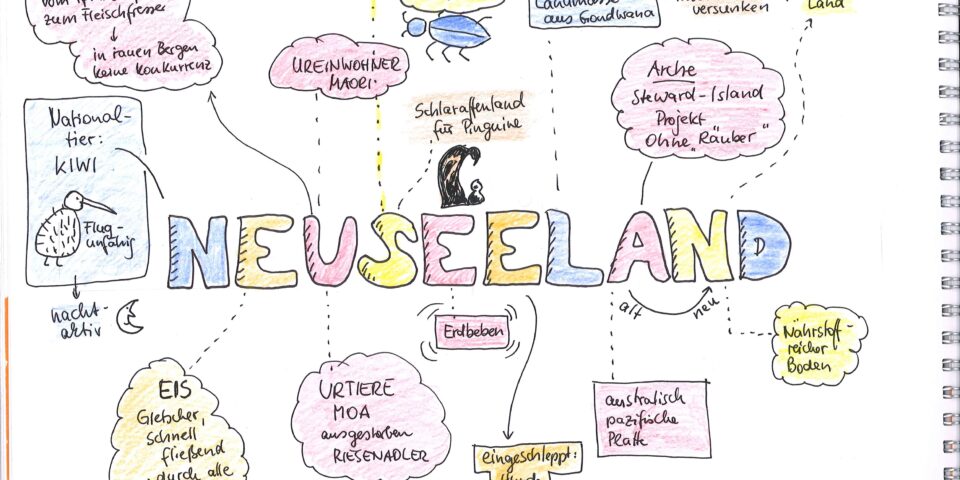 zum Fleischfresser
in rauen Bergen
keine Konkurrenz
UREINWOHNER
MAORI
Landmasse
aus Gondwana
versunken
Land
Arche
Steward-Island
Projekt
Ohne "Räuber"
Schlaraffenland
für Pinguine
National-
tier:
KIWI
Flug-
unfähig
nacht-
aktiv
NEUSEELAND
D
alt
neu
Erdbeben
Nährstoff-
reicher
Boden
EIS
Gletscher,
schnell
fließend
durch alle
URTIERE
MOA
ausgestorben
RIESENADLER
eingeschleppt:
australisch
pazifische
Platte